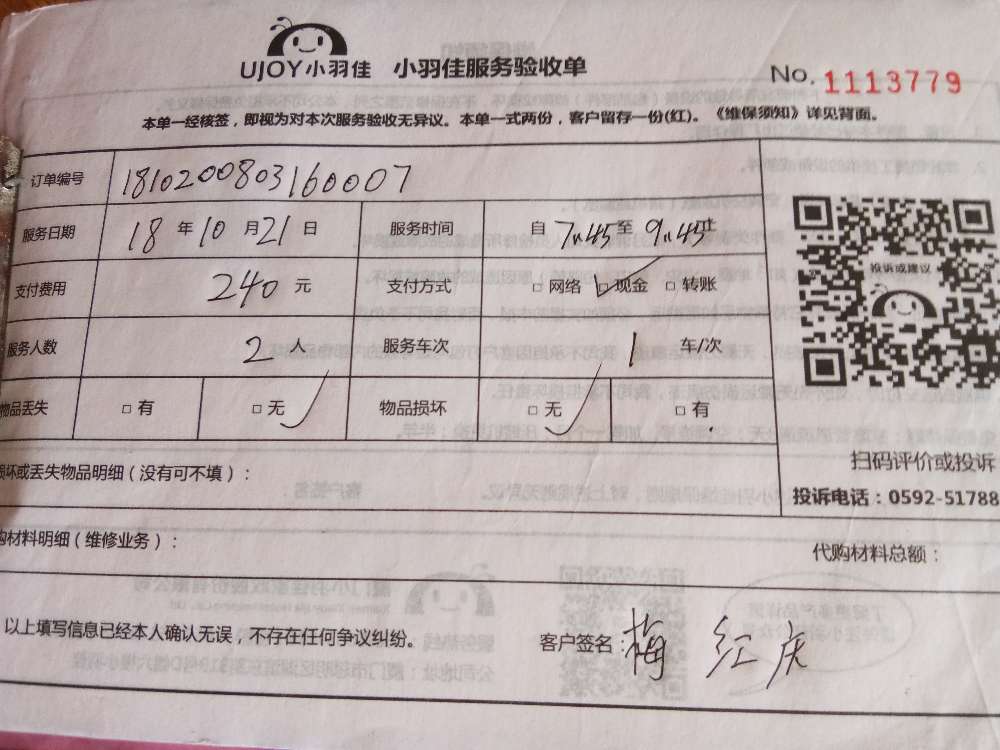 UJOY小羽佳 小羽佳服务验收单
No. 1113779
本单一经核签，即视为对本次服务验收无异议。本单一式两份，客户留存一份(红)。《维保须知》详见背面。
订单编号 1810200803160007
服务日期 18 年 10 月 21 日 服务时间 自 7:45 至 9:45止
支付费用 240 元 支付方式 □ 网络 □ 现金 □ 转账
服务人数 2 人 服务车次 1 车/次
物品丢失 □ 有 □ 无 物品损坏 □ 无 □ 有
投诉或建议
损坏或丢失物品明细（没有可不填）：
扫码评价或投诉
投诉电话：0592-51788
购材料明细（维修业务）：
代购材料总额：
以上填写信息已经本人确认无误，不存在任何争议纠纷。
客户签名：梅红庆